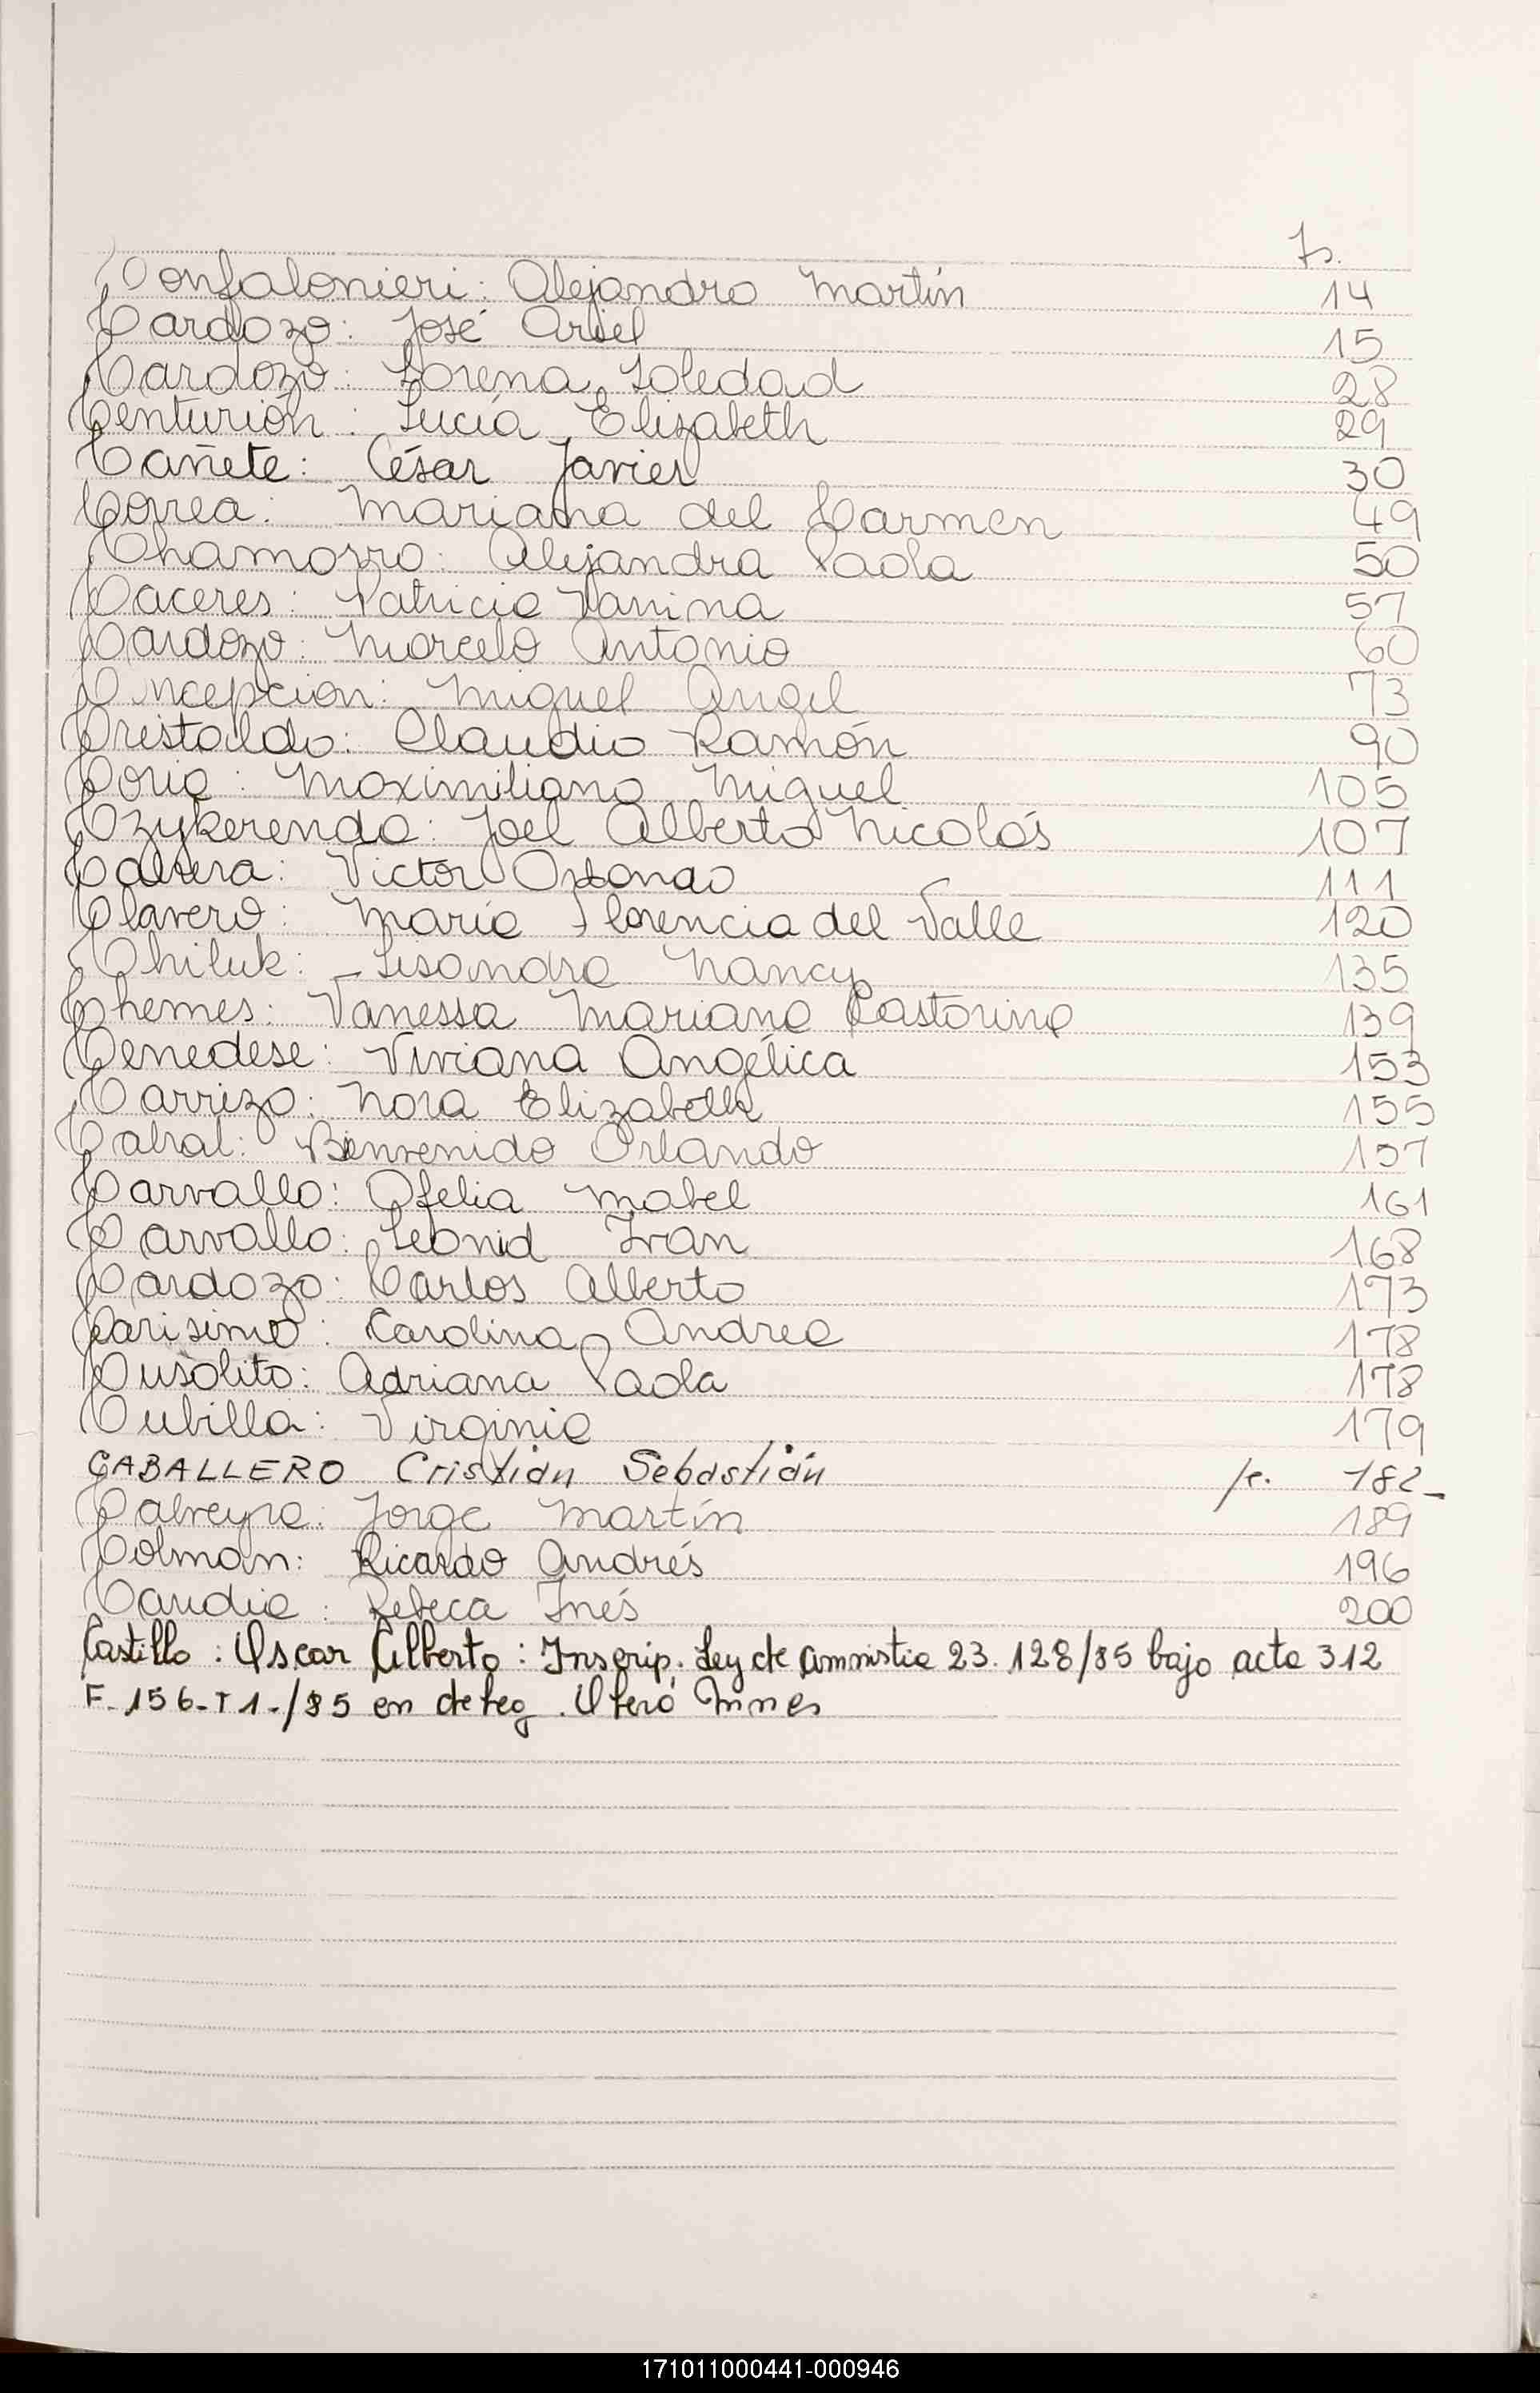 Fs.
Confalonieri: Alejandro Martín 14
Cardozo: José Ariel 15
Cardozo: Lorena Soledad 28
Centurión: Lucía Elizabeth 29
Cañete: César Javier 30
Correa: Mariana del Carmen 49
Chamorro: Alejandra Paola 50
Caceres: Patricia Vanina 57
Cardozo: Marcelo Antonio 60
Concepcion: Miguel Angel 73
Cristaldo: Claudio Ramón 90
Coria: Maximiliano Miguel 105
Czykerendo: Joel Alberto Nicolás 107
Victor 111
Clavero: María Florencia del Valle 120
Chiluk: Lisandra Nancy 135
Chemes: Vanessa Mariana Pastorina 139
Cenedese: Viviana Angélica 153
Carrizo: Nora Elizabeth 155
Cabral: Bienvenido Orlando 157
Carvallo: Ofelia Mabel 161
Carvallo: Leonid Ivan 168
Cardozo: Carlos Alberto 173
Carisimo: Carolina Andrea 178
Cusolito: Adriana Paola 178
Cubilla: Virginia 179
CABALLERO Cristián Sebastián 182_
Cabreyra: Jorge Martín 189
Colman: Ricardo Andrés 196
Caudia: Rebeca Inés 200
Castillo: Oscar Alberto: Inscrip. Ley de amnistia 23.128/85 bajo acta 312
F-156-T1-/85 en deleg. Otero
171011000441-000946